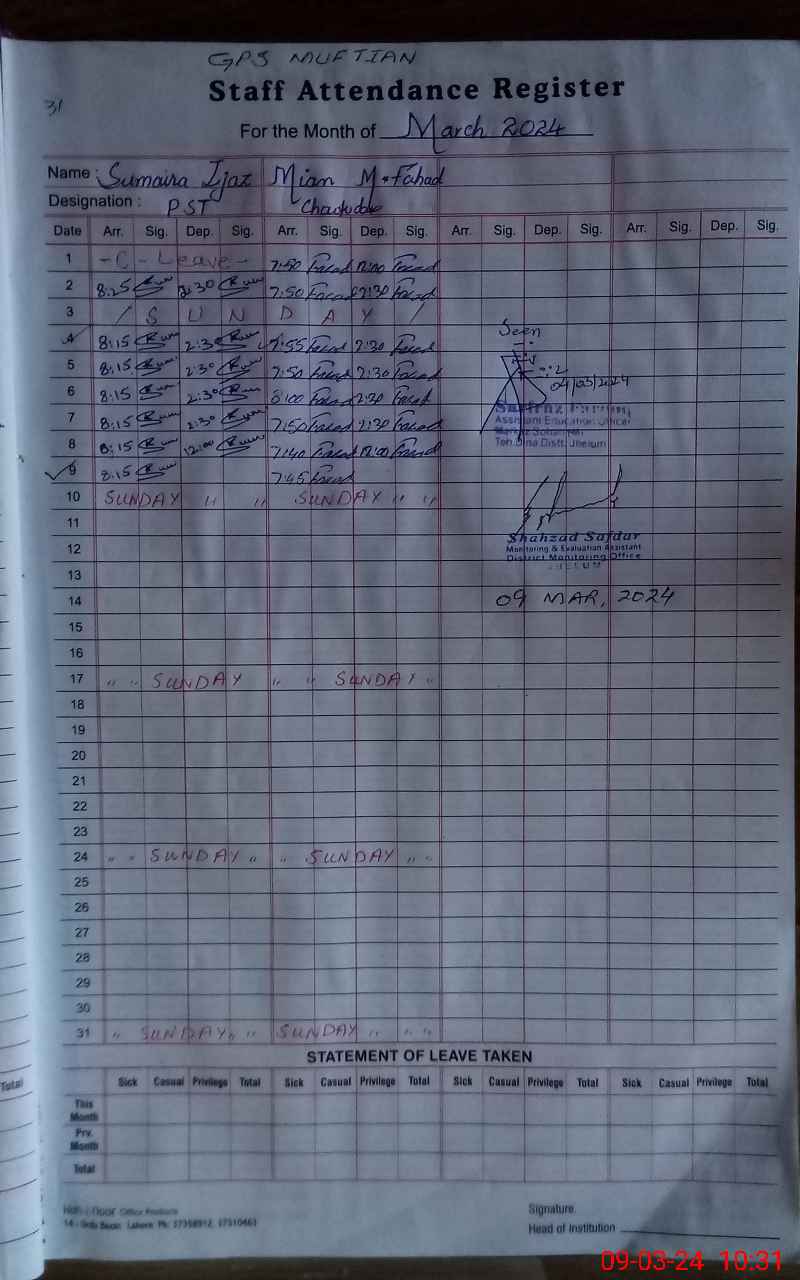 GPS MUFTIAN
31
Staff Attendance Register
For the Month of March 2024
Name : Sumaira Ijaz Mian M. Fahad
Designation : PST
Date Arr. Sig. Dep. Sig. Arr. Sig. Dep. Sig. Arr. Sig. Dep. Sig. Arr. Sig. Dep. Sig.
1 - C - Leave - 7:50 Fahad 12:00 Fahad
2 8:25 2:30 7:50 Fahad 2:30 Fahad
3 / S U N D A Y /
Seen
4 8:15 2:30 7:55 Fahad 2:30 Fahad
5 8:15 2:30 7:50 Fahad 2:30 Fahad
04/03/2024
6 8:15 2:30 8:00 Fahad 2:30 Fahad
Assistant Education Officer
7 8:15 2:30 7:50 Fahad 2:30 Fahad
Teh. Dina Distt. Jhelum
8 8:15 12:00 7:40 Fahad 12:00 Fahad
9 8:15 7:45 Fahad
10 SUNDAY " " SUNDAY " "
11
Shahzad Safdar
12 Monitoring & Evaluation Assistant
District Monitoring Office
JHELUM
13
14 09 MAR, 2024
15
16
17 " " SUNDAY " " SUNDAY "
18
19
20
21
22
23
24 " " SUNDAY " " SUNDAY " "
25
26
27
28
29
30
31 " SUNDAY " " SUNDAY " " "
STATEMENT OF LEAVE TAKEN
Sick Casual Privilege Total Sick Casual Privilege Total Sick Casual Privilege Total Sick Casual Privilege Total
Total
This
Month
Prv.
Month
Total
Office Products
Signature.
14 - Urdu Bazar, Lahore. Ph: 37358912, 37310463
Head of Institution
09-03-24 10:31